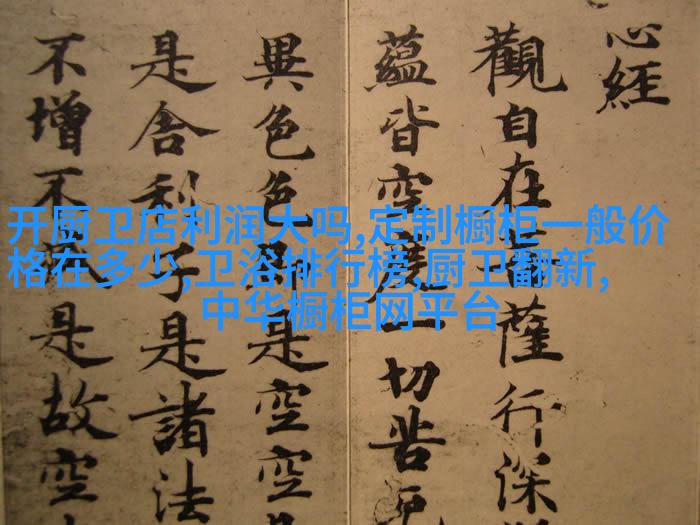 心經
觀自在菩薩行深
蘊皆空度一切苦厄
異色色即是空空
是舍利子是諸法
不增不減是故空
开厨卫店利润大吗,定制橱柜一般价
格在多少,卫浴排行榜,厨卫翻新,
中华橱柜网平台